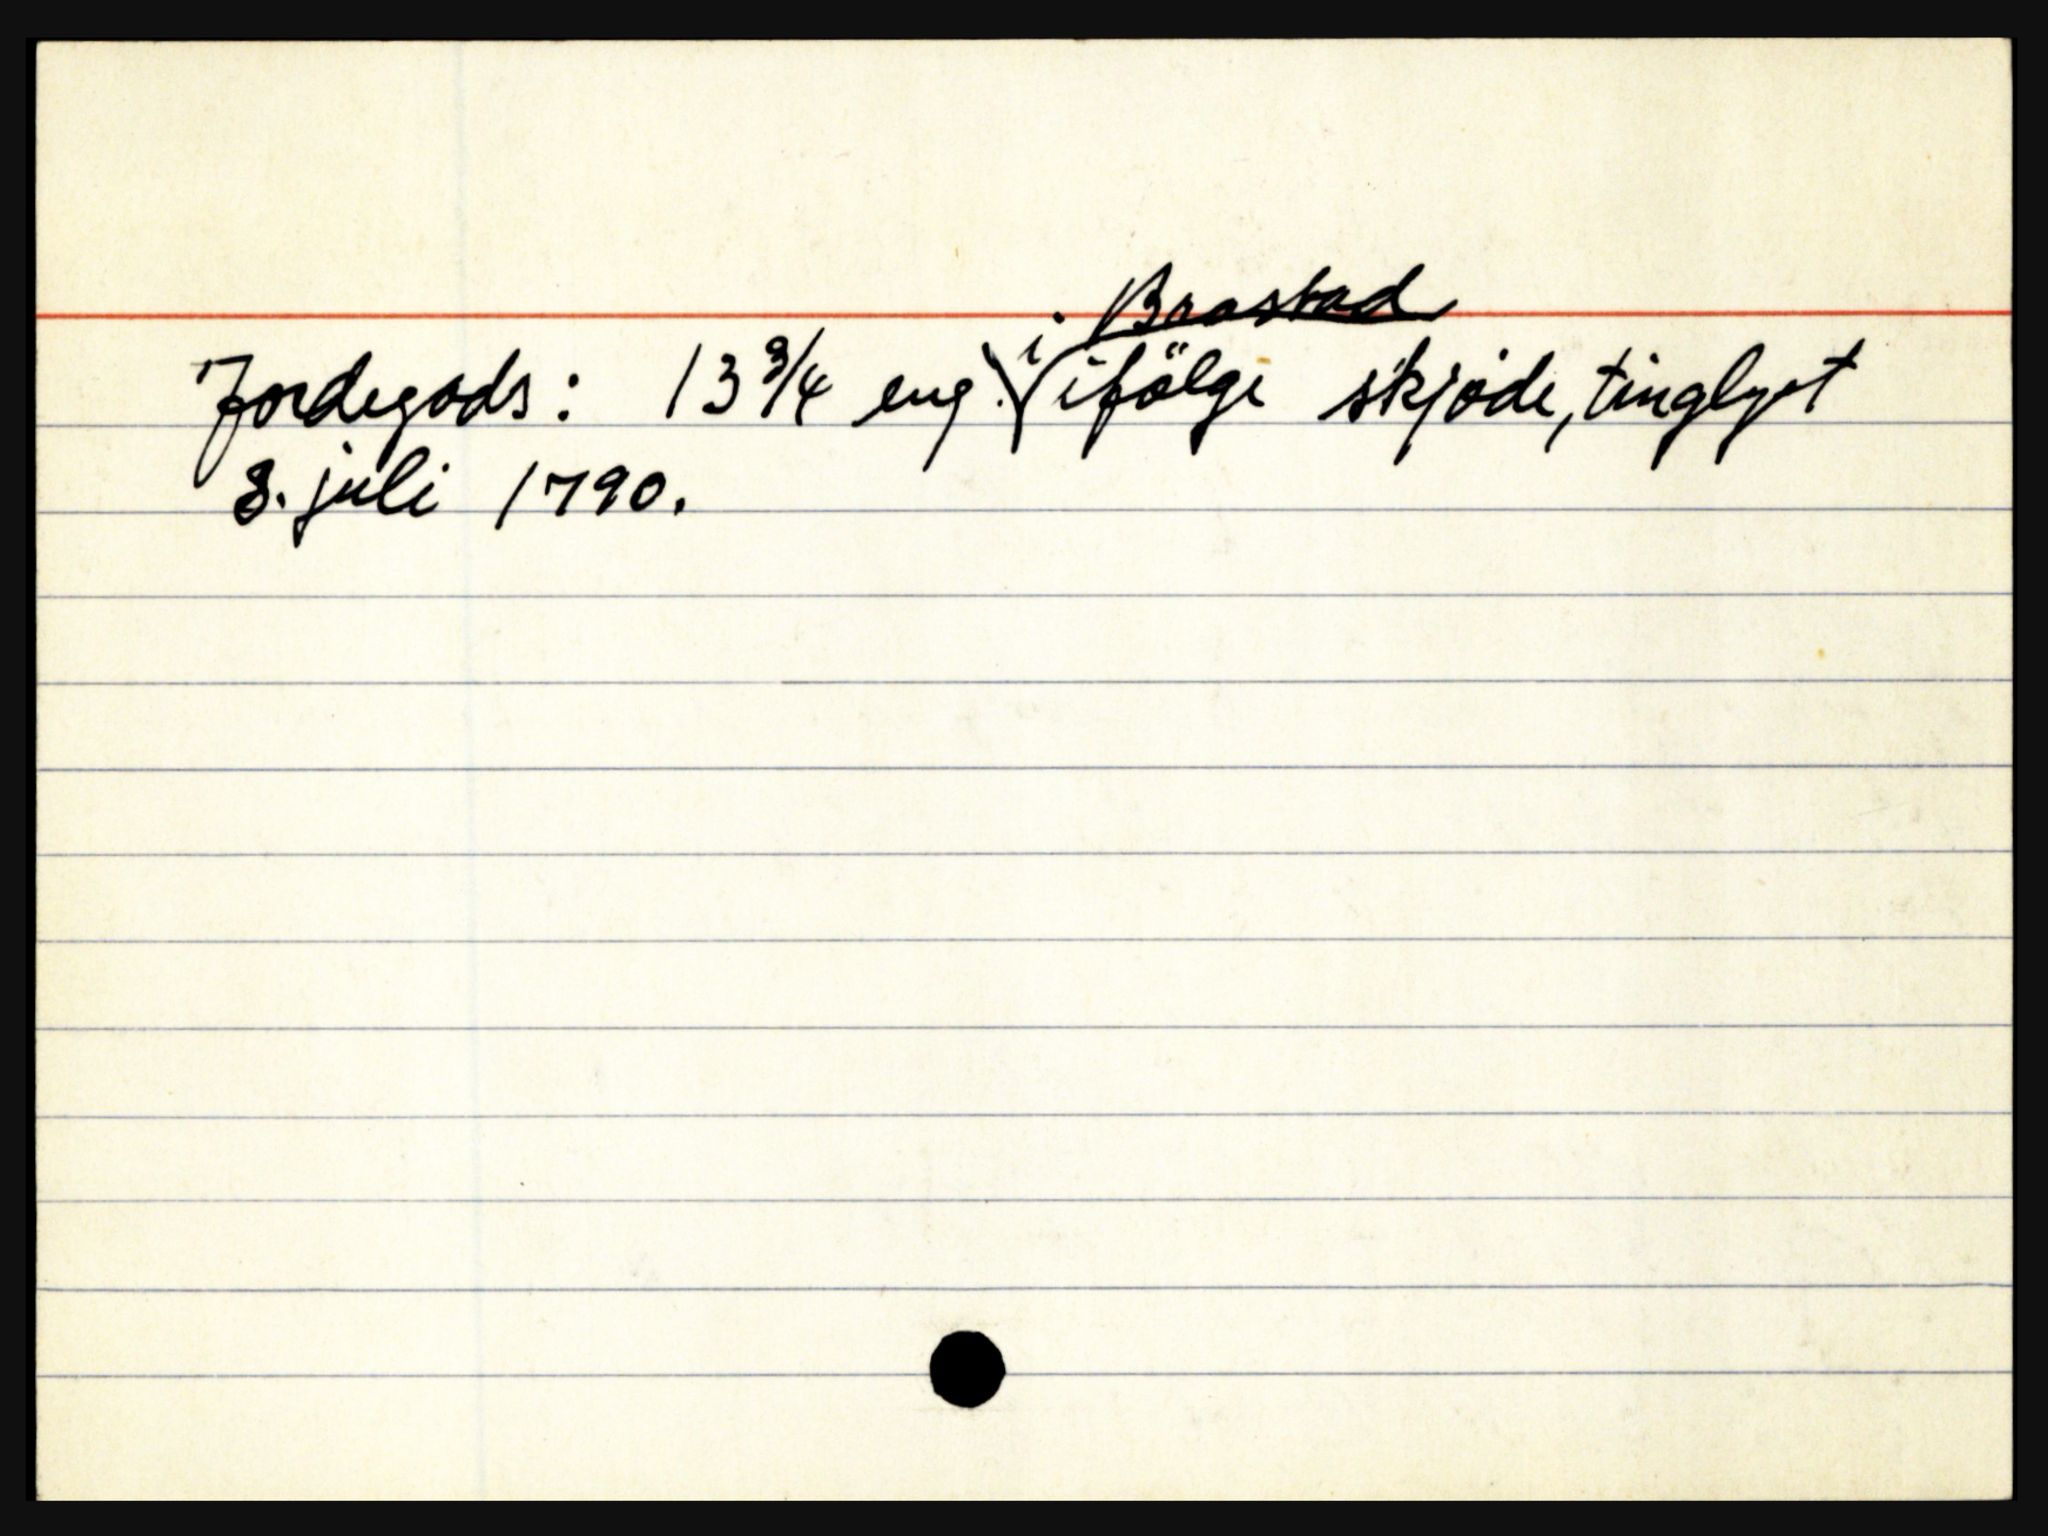 i Brastad
Jordegods: 13 3/4 eng. ifölge skjöde, tinglyst
8. juli 1790.